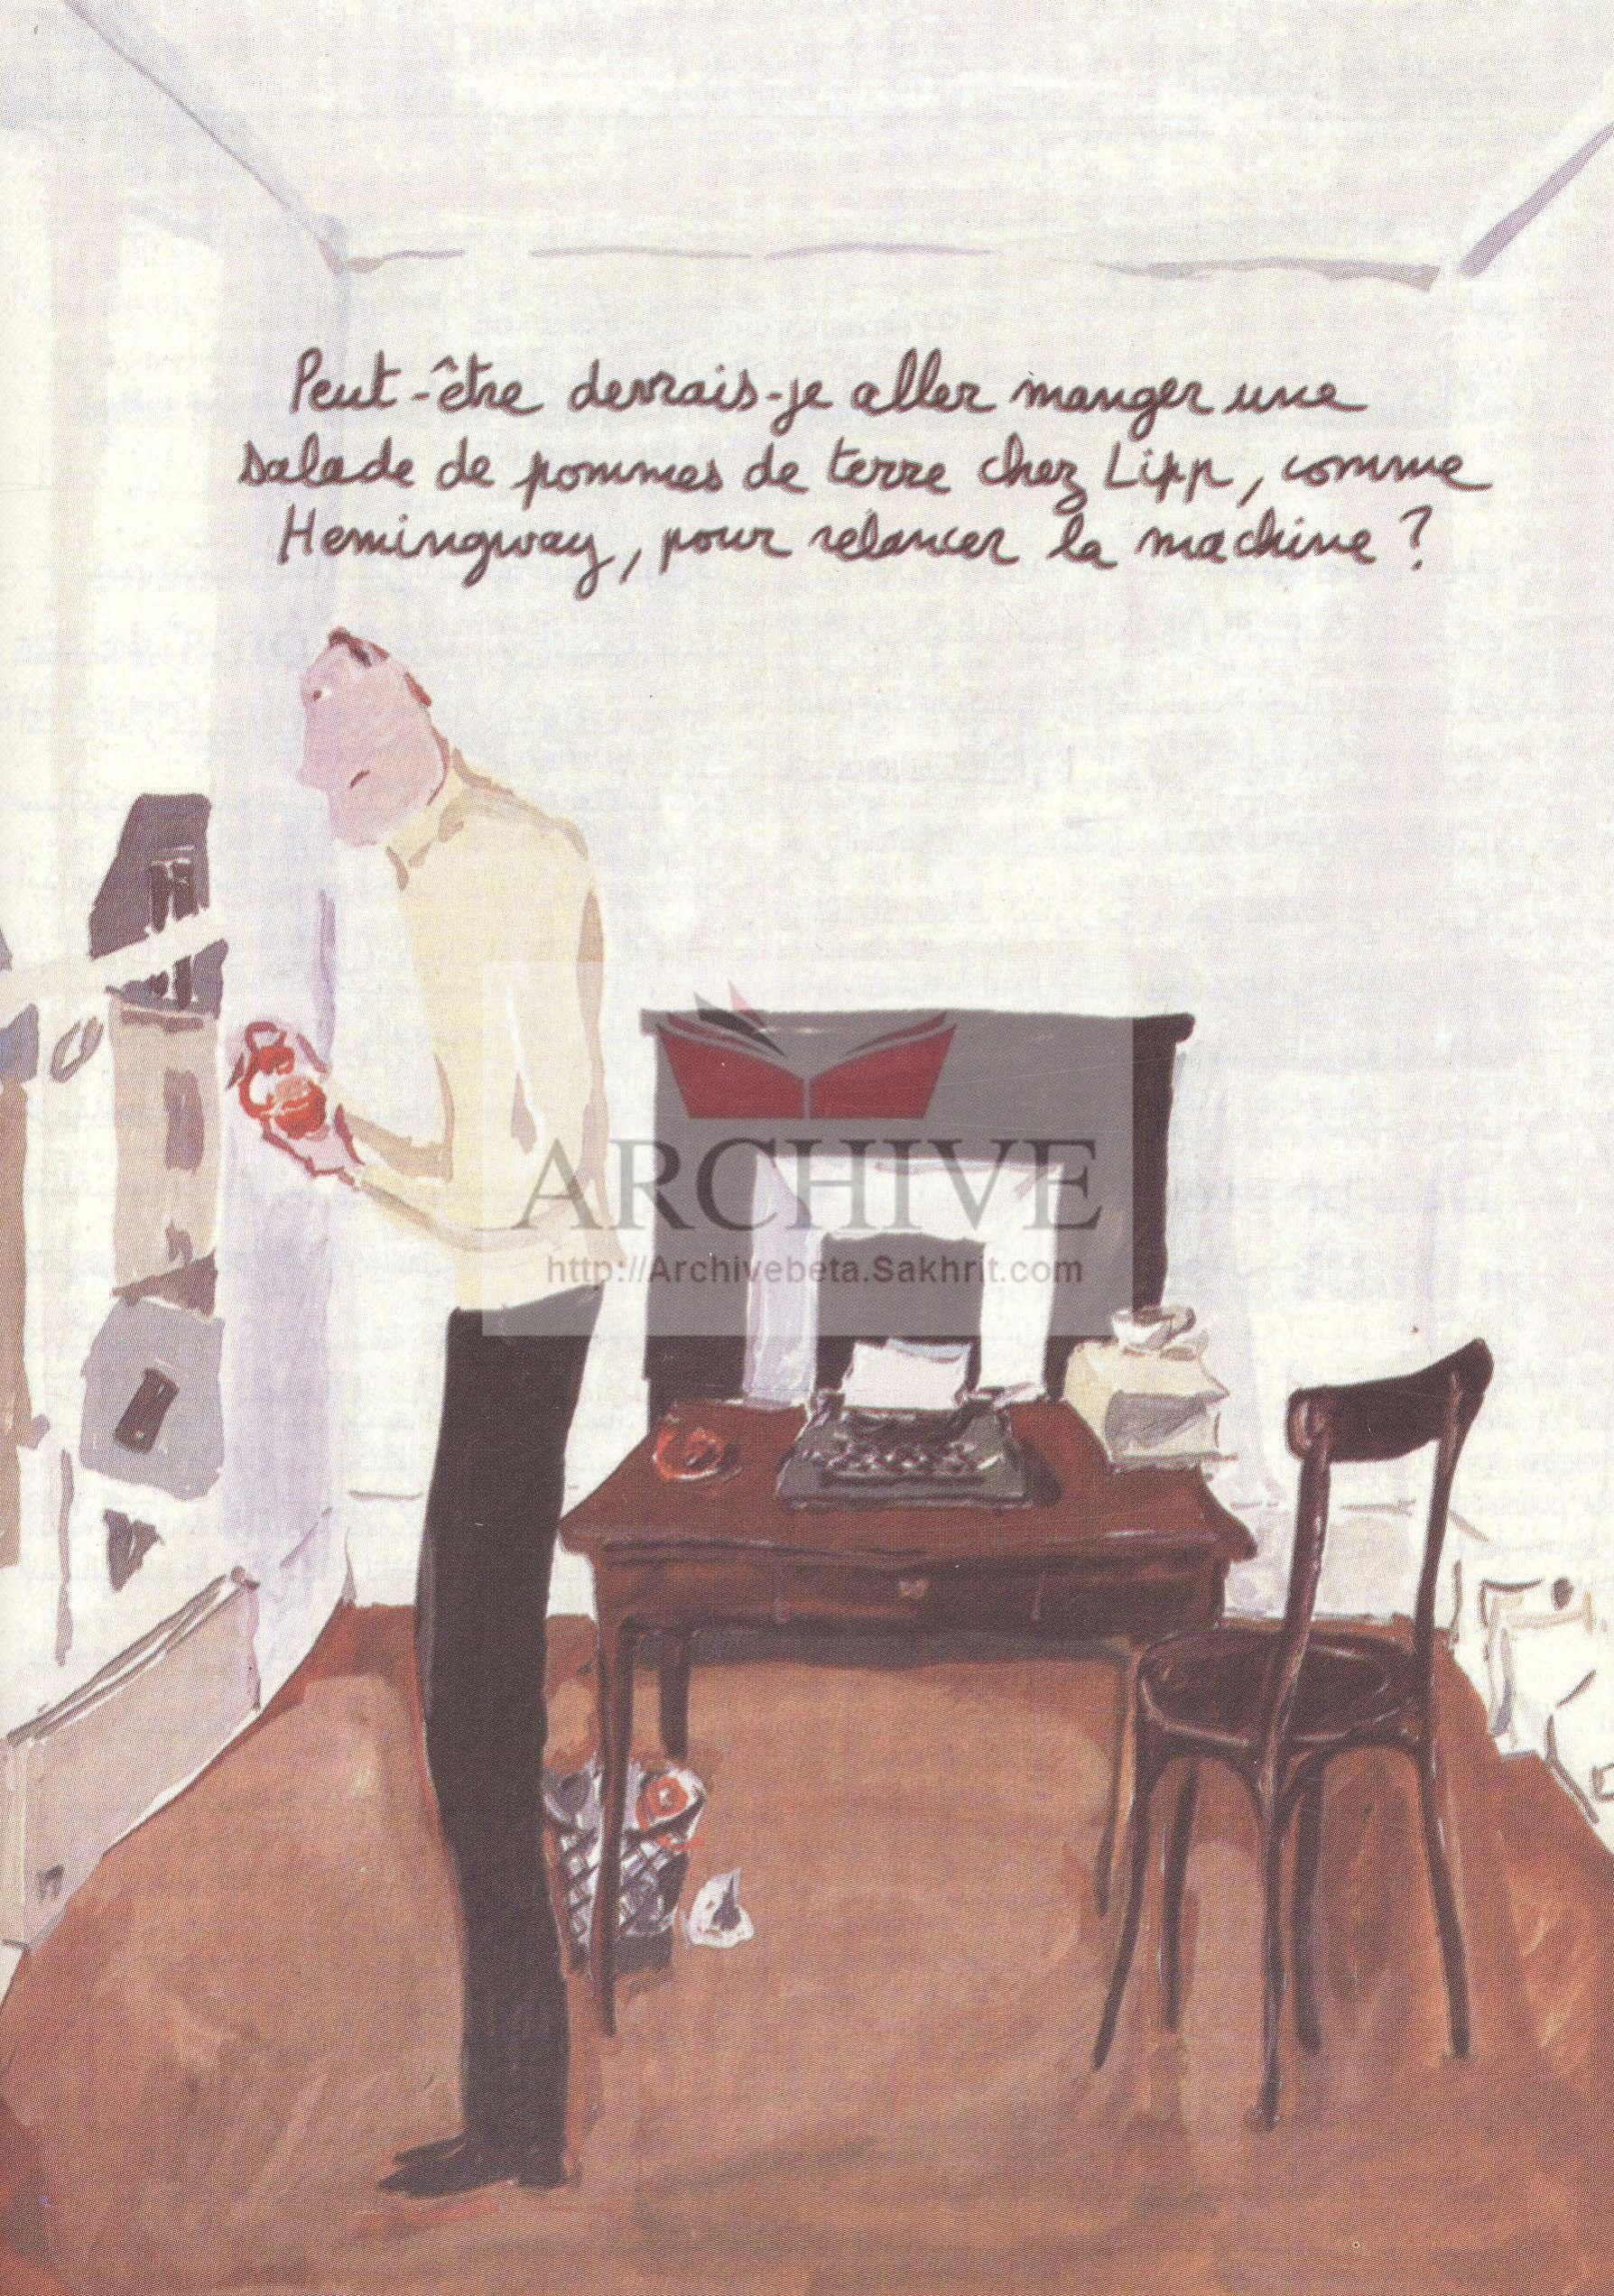 Peut-être devrais-je aller manger une
salade de pommes de terre chez Lipp, comme
Hemingway, pour relancer la machine ?
ARCHIVE
http://Archivebeta.Sakhrit.com